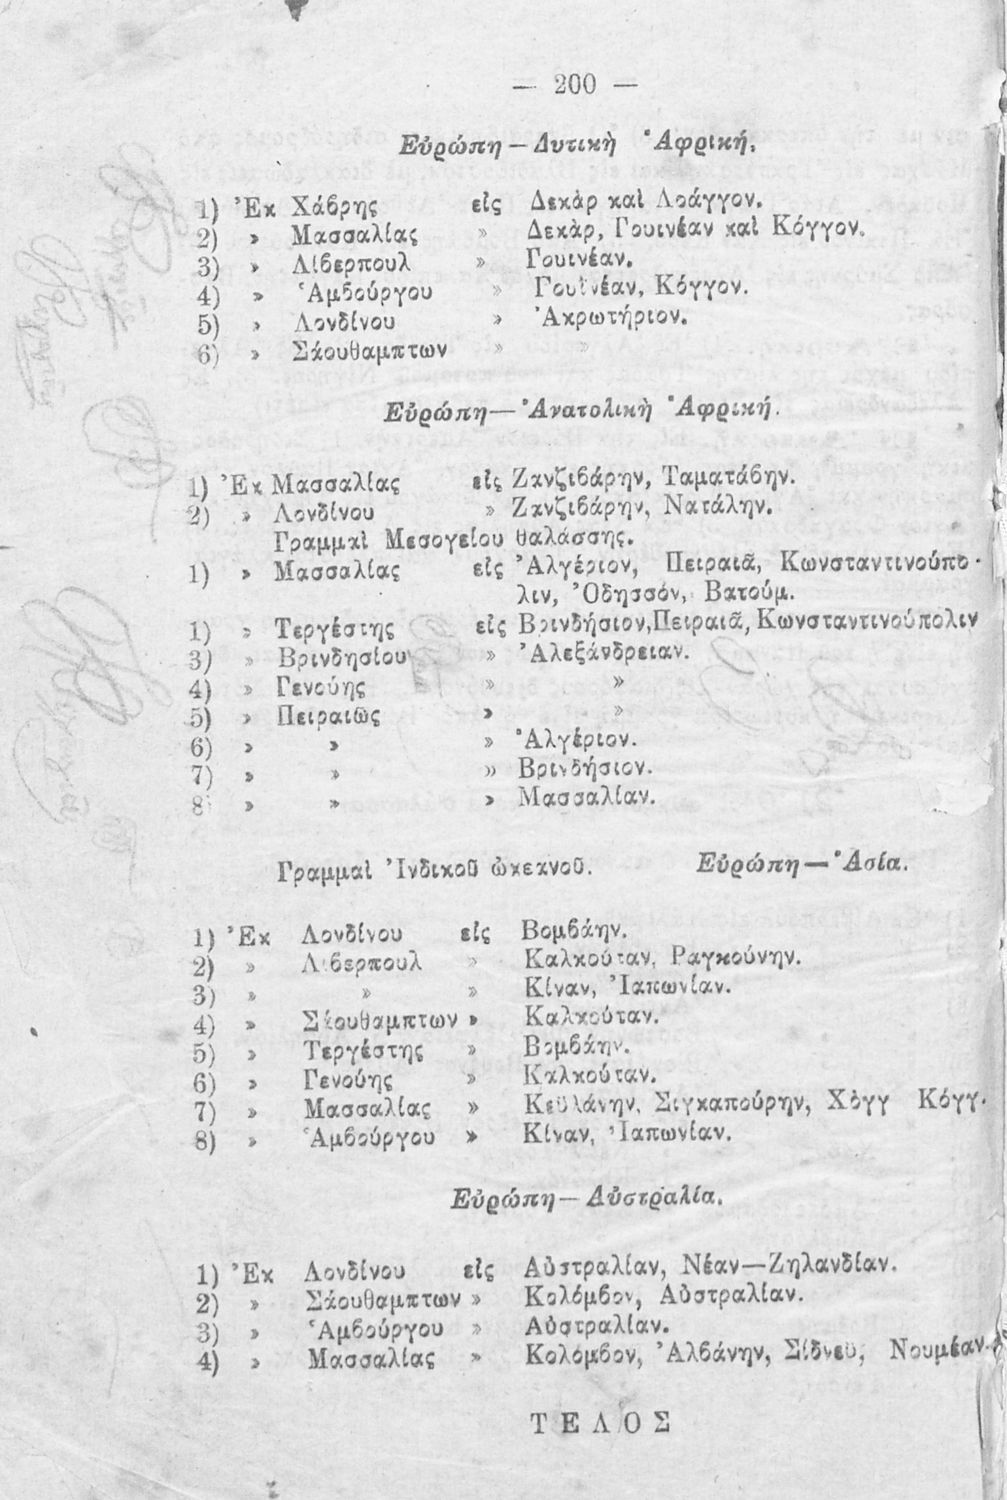 — 200 —
Εὐρώπη — Δυτικὴ Ἀφρική.
1) Ἐκ Χάβρης εἰς Δεκὰρ καὶ Λοάγγον.
2) » Μασσαλίας » Δεκὰρ, Γουινέαν καὶ Κόγγον.
3) » Λίβερπουλ » Γουινέαν.
4) » Ἁμβούργου » Γουϊνέαν, Κόγγον.
5) » Λονδίνου » Ἀκρωτήριον.
6) » Σάουθαμπτων » »
Εὐρώπη — Ἀνατολικὴ Ἀφρική.
1) Ἐκ Μασσαλίας εἰς Ζανζιβάρην, Ταματάβην.
2) » Λονδίνου » Ζανζιβάρην, Νατάλην.
Γραμμαὶ Μεσογείου θαλάσσης.
1) » Μασσαλίας εἰς Ἀλγέριον, Πειραιᾶ, Κωνσταντινούπο-
λιν, Ὀδησσόν, Βατούμ.
1) » Τεργέστης εἰς Βρινδήσιον, Πειραιᾶ, Κωνσταντινούπολιν
3) » Βρινδησίου » Ἀλεξάνδρειαν.
4) » Γενούης » »
5) » Πειραιῶς » »
6) » » » Ἀλγέριον.
7) » » » Βρινδήσιον.
8) » » » Μασσαλίαν.
Γραμμαὶ Ἰνδικοῦ ὠκεανοῦ. Εὐρώπη — Ἀσία.
1) Ἐκ Λονδίνου εἰς Βομβάην.
2) » Λίβερπουλ » Καλκούταν, Ραγκούνην.
3) » » » Κίναν, Ἰαπωνίαν.
4) » Σάουθαμπτων » Καλκούταν.
5) » Τεργέστης » Βομβάην.
6) » Γενούης » Καλκούταν.
7) » Μασσαλίας » Κεϋλάνην, Σιγκαπούρην, Χὸγγ Κόγγ.
8) » Ἁμβούργου » Κίναν, Ἰαπωνίαν.
Εὐρώπη — Αὐστραλία.
1) Ἐκ Λονδίνου εἰς Αὐστραλίαν, Νέαν—Ζηλανδίαν.
2) » Σάουθαμπτων » Κολόμβον, Αὐστραλίαν.
3) » Ἁμβούργου » Αὐστραλίαν.
4) » Μασσαλίας » Κολόμβον, Ἀλβάνην, Σίδνεϋ, Νουμέαν.
ΤΕΛΟΣ